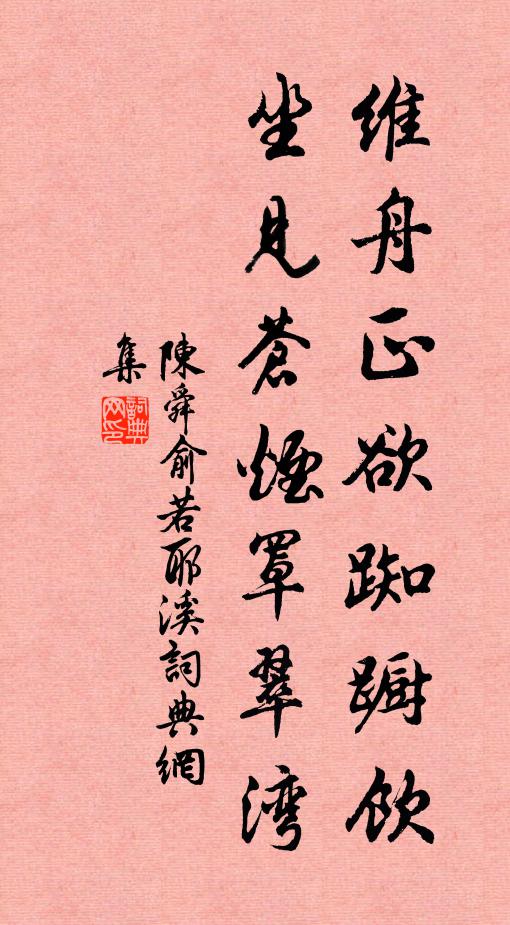 維舟正欲踟躕飲
坐見蒼煙罩翠湾
陳舜俞若耶溪詞典網
集
詞典
网印